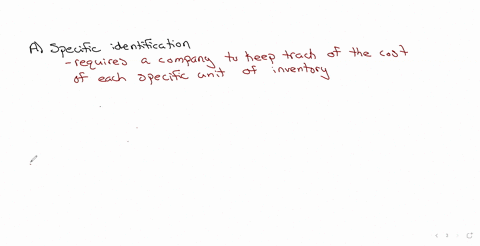 A) Specific identification
-requires a company to keep track of the cost
of each specific unit of inventory